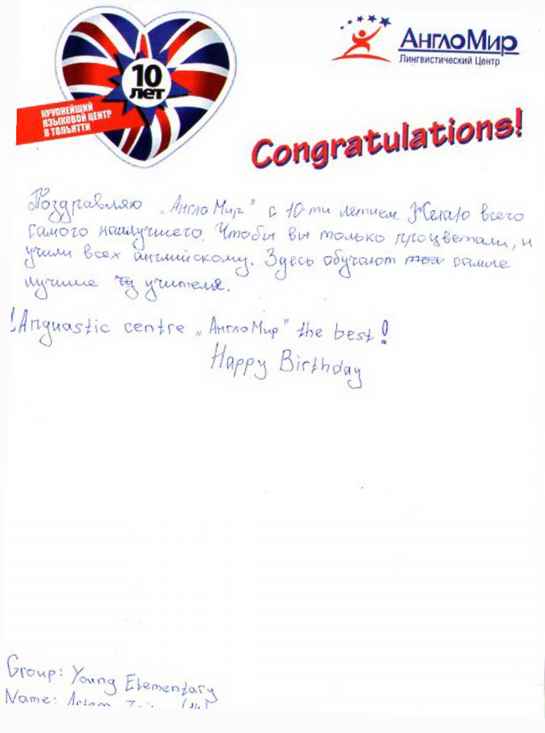 10
лет
КРУПНЕЙШИЙ
ЯЗЫКОВОЙ ЦЕНТР
В ТОЛЬЯТТИ
АнглоМир
Лингвистический Центр
Congratulations!
Поздравляю „АнглоМир" с 10-ти летием Желаю всего
самого наилучшего. Чтобы вы только процветали, и
учили всех английскому. Здесь обучают самые
лучшие учителя.
!Anguastic centre „АнглоМир" the best!
Happy Birthday
Group: Young Elementary
Name: